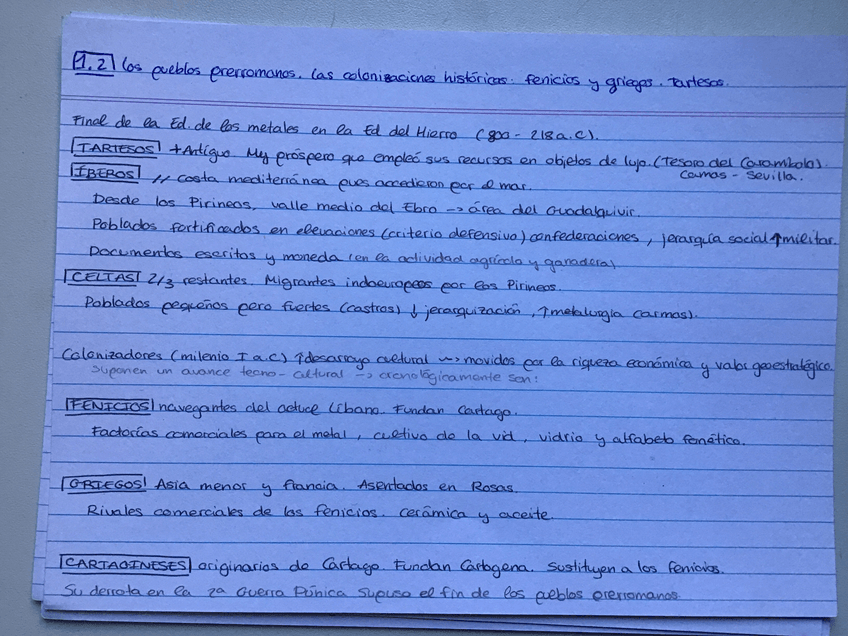 1.2 los pueblos prerromanos. Las colonizaciones históricas: fenicios y griegos. Tartesos.
Final de la Ed. de los metales en la Ed del Hierro (800 - 218 a.C).
TARTESOS +Antiguo. My próspero que empleó sus recursos en objetos de lujo. (Tesoro del Carambolo)
Camas - Sevilla.
ÍBEROS // costa mediterránea pues accedieron por el mar.
Desde los Pirineos, valle medio del Ebro -> área del Guadalquivir.
Poblados fortificados en elevaciones (criterio defensivo) confederaciones, jerarquía social ↑ militar.
Documentos escritos y moneda (en la actividad agrícola y ganadera)
CELTAS 2/3 restantes. Migrantes indoeuropeos por los Pirineos.
Poblados pequeños pero fuertes (castros) ↓ jerarquización, ↑ metalurgia (armas).
Colonizadores (milenio I a.C) ↑ desarroyo cultural ~> movidos por la riqueza económica y valor geoestratégico.
Suponen un avance tecno-cultural -> cronológicamente son:
FENICIOS navegantes del actual Líbano. Fundan Cartago.
Factorías comerciales para el metal, cultivo de la vid, vidrio y alfabeto fonático.
GRIEGOS Asia menor y Francia. Asentados en Rosas.
Rivales comerciales de los fenicios. cerámica y aceite.
CARTAGINESES originarios de Cartago. Fundan Cartagena. Sustituyen a los fenicios.
Su derrota en la 2ª Guerra Púnica supuso el fin de los pueblos prerromanos.